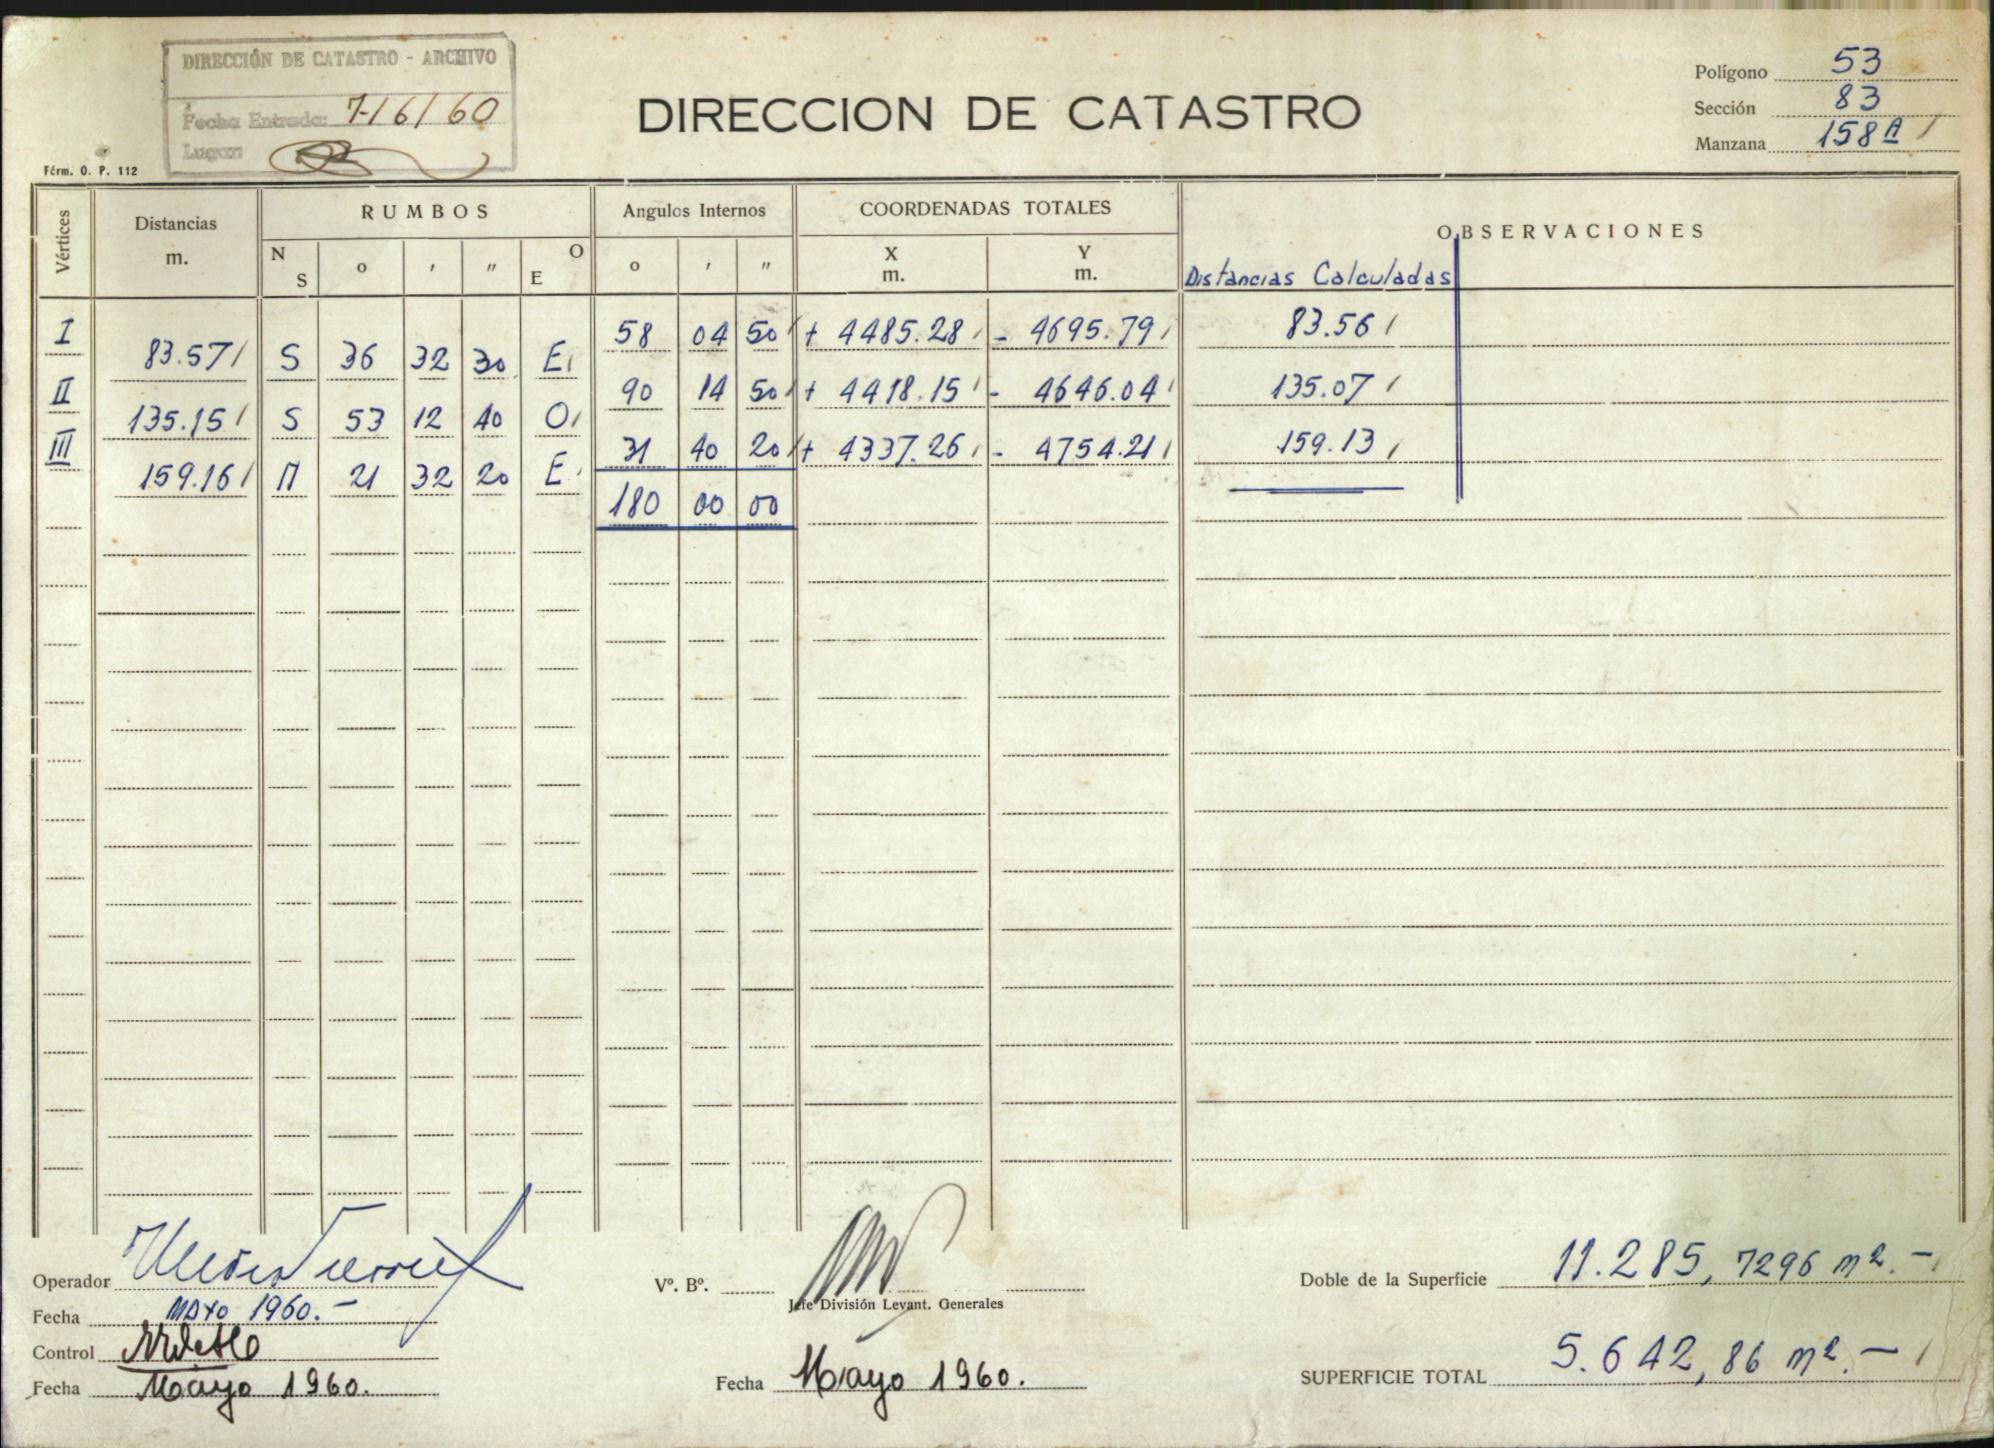 DIRECCIÓN DE CATASTRO - ARCHIVO
Fecha Entrada: 7/6/60
Lugar:
DIRECCION DE CATASTRO
Polígono 53
Sección 83
Manzana 158A
Fórm. O. P. 112
Vértices Distancias m. RUMBOS Angulos Internos COORDENADAS TOTALES OBSERVACIONES
N S o ' " O E o ' " X m. Y m. Distancias Calculadas
I 58 04 50 + 4485.28 - 4695.79 83.56
83.57 S 36 32 30 E
II 90 14 50 + 4418.15 - 4646.04 135.07
135.15 S 53 12 40 O
III 31 40 20 + 4337.26 - 4754.21 159.13
159.16 N 21 32 20 E
180 00 00
Operador
Fecha Mayo 1960.-
Control
Fecha Mayo 1960.
Vº. Bº.
Jefe División Levant. Generales
Fecha Mayo 1960.
Doble de la Superficie 11.285,7296 m2.-
SUPERFICIE TOTAL 5.642,86 m2.-